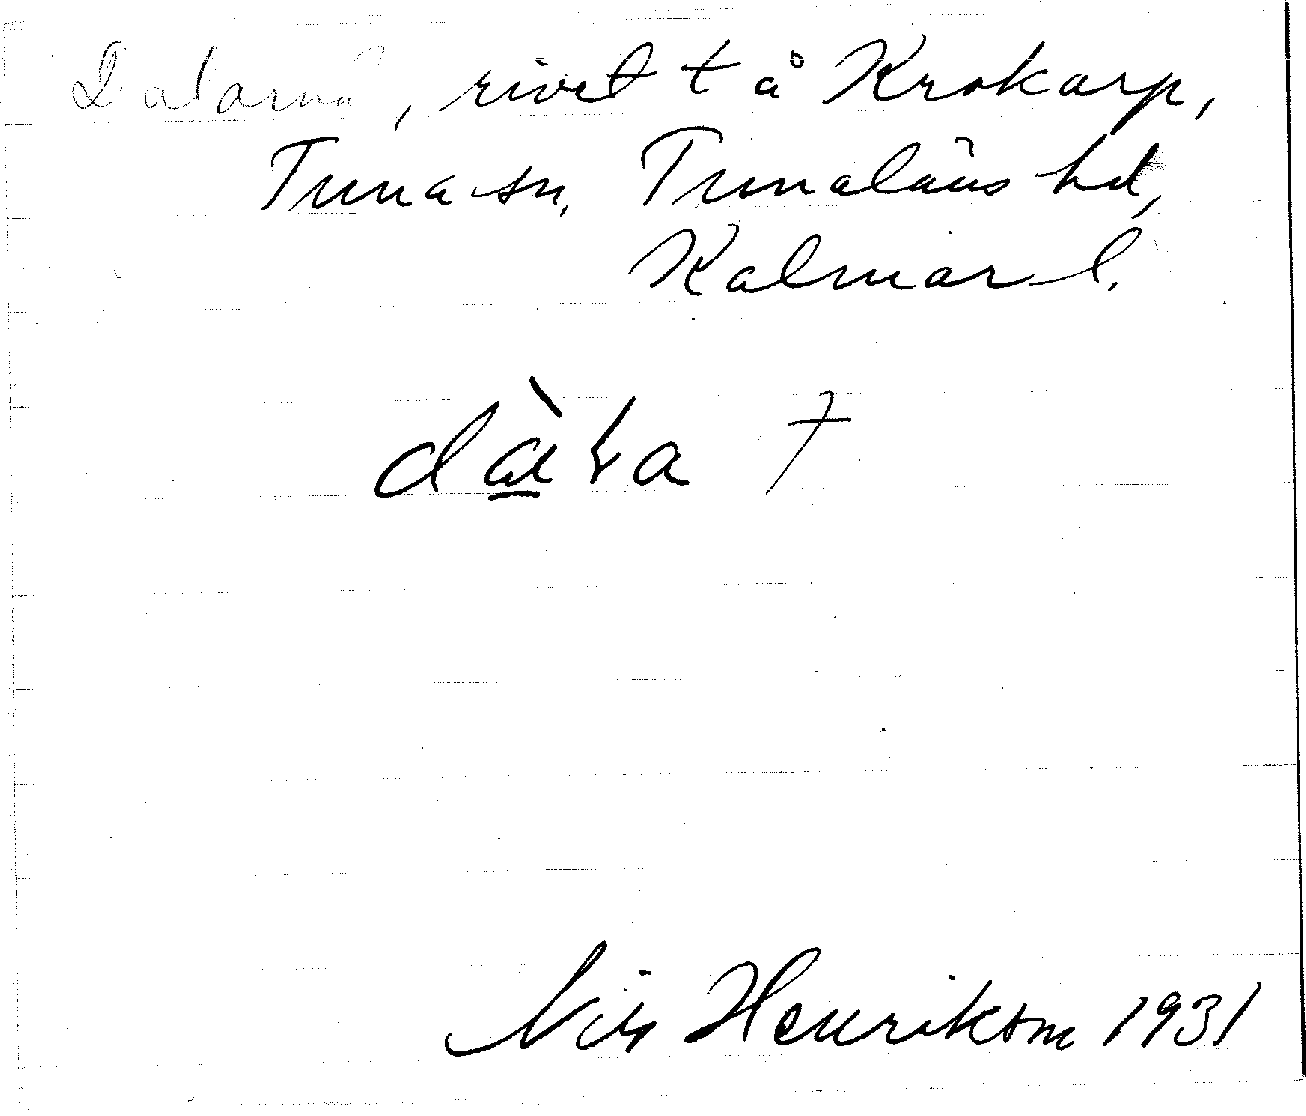 Dalarna, rivet t å Krokarp,
Tuna sn, Tunaläns hd,
Kalmar l.
dàɽa †
Nils Henrikson 1931